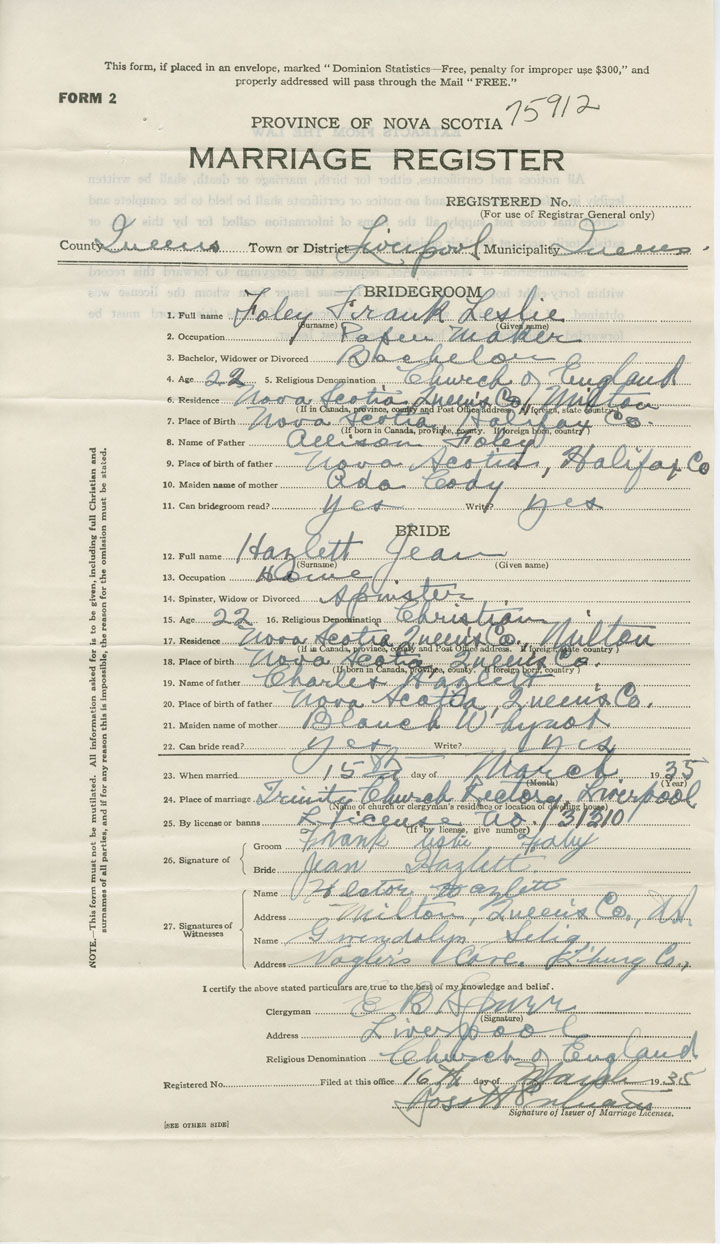 This form, if placed in an envelope, marked "Dominion Statistics—Free, penalty for improper use $300," and
properly addressed will pass through the Mail "FREE."
FORM 2
PROVINCE OF NOVA SCOTIA 75912
MARRIAGE REGISTER
REGISTERED No.
(For use of Registrar General only)
County Queens Town or District Liverpool Municipality Queens.
BRIDEGROOM
1. Full name Foley Frank Leslie
(Surname) (Given name)
2. Occupation Paper Maker
3. Bachelor, Widower or Divorced Bachelor
4. Age 22 5. Religious Denomination Church of England
6. Residence Nova Scotia Queens Co, Milton
(If in Canada, province, county and Post Office address. If foreign, state country)
7. Place of Birth Nova Scotia, Halifax Co.
(If born in Canada, province, county. If foreign born, country)
8. Name of Father Allison Foley
9. Place of birth of father Nova Scotia, Halifax Co
10. Maiden name of mother Ada Cody
11. Can bridegroom read? yes Write? yes
BRIDE
12. Full name Hazlett Jean
(Surname) (Given name)
13. Occupation Home
14. Spinster, Widow or Divorced Spinster
15. Age 22 16. Religious Denomination Christian
17. Residence Nova Scotia Queens Co., Milton
(If in Canada, province, county and Post Office address. If foreign, state country)
18. Place of birth Nova Scotia, Queens Co.
(If born in Canada, province, county. If foreign born, country)
19. Name of father Charles Hazlett
20. Place of birth of father Nova Scotia, Queens Co.
21. Maiden name of mother Blanch Whynot
22. Can bride read? yes Write? yes
23. When married 15th day of March 1935
(Month) (Year)
24. Place of marriage Trinity Church Rectory, Liverpool
(Name of church or clergyman's residence or location of dwelling house)
25. By license or banns License No. 131310
(If by license, give number)
26. Signature of
Groom Frank Leslie Foley
Bride Jean Hazlett
27. Signatures of Witnesses
Name Hector Hazlett
Address Milton, Queens Co., N.S.
Name Gwendolyn Selig
Address Vogler's Cove. L'burg Co.,
I certify the above stated particulars are true to the best of my knowledge and belief.
Clergyman E B Spurr
(Signature)
Address Liverpool
Religious Denomination Church of England
Registered No. Filed at this office 16th day of March 1935
Signature of Issuer of Marriage Licenses.
[SEE OTHER SIDE]
NOTE.—This form must not be mutilated. All information asked for is to be given, including full Christian and
surnames of all parties, and if for any reason this is impossible, the reason for the omission must be stated.